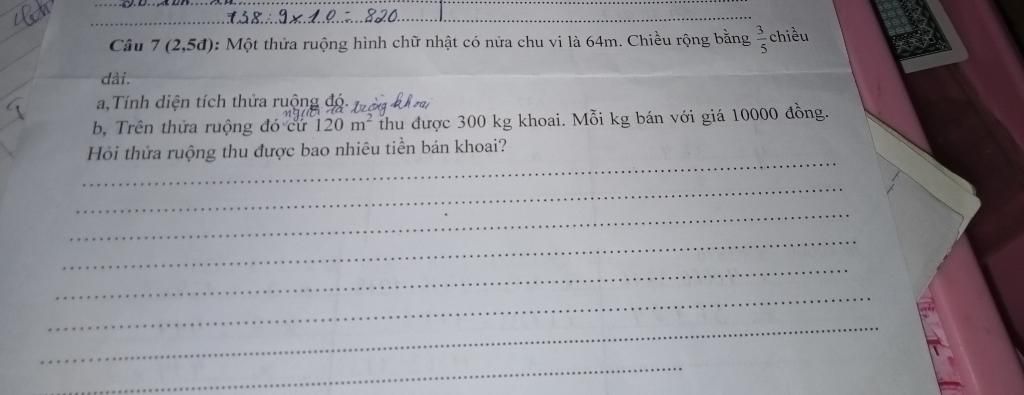 738:9x10= 820
Câu 7 (2,5đ): Một thửa ruộng hình chữ nhật có nửa chu vi là 64m. Chiều rộng bằng 3/5 chiều
dài.
a,Tính diện tích thửa ruộng đó.
người ta trồng khoai
b, Trên thửa ruộng đó cứ 120 m² thu được 300 kg khoai. Mỗi kg bán với giá 10000 đồng.
Hỏi thửa ruộng thu được bao nhiêu tiền bán khoai?